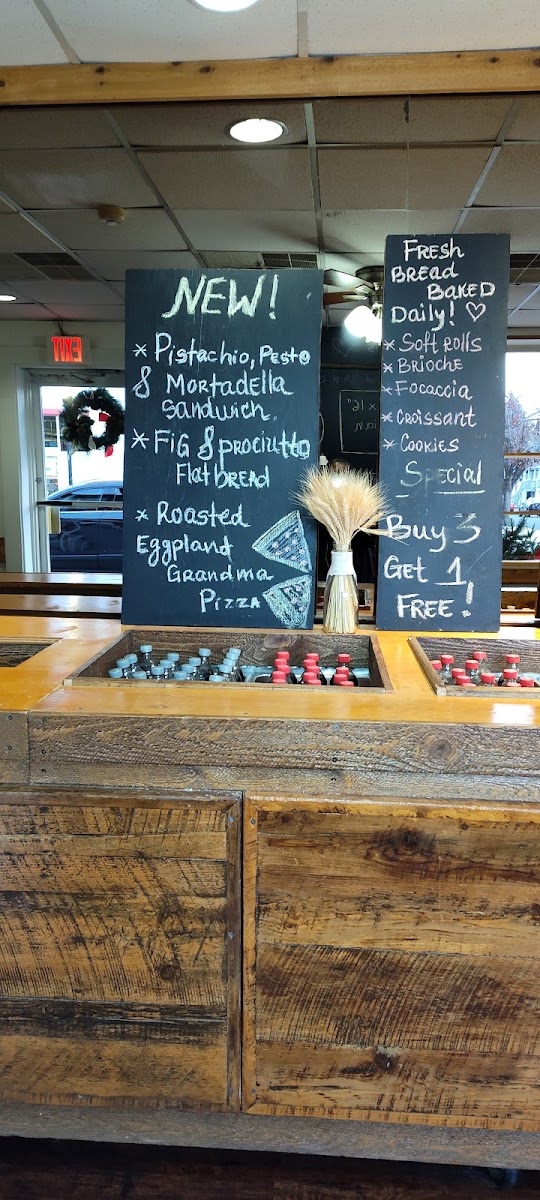 EXIT
NEW!
* Pistachio, Pesto
& Mortadella
Sandwich
* Fig & prociutto
Flatbread
* Roasted
Eggpland
Grandma
Pizza
Fresh
Bread
Baked
Daily! ♡
* Soft rolls
* Brioche
* Focaccia
* Croissant
* Cookies
Special
Buy 3
Get 1
FREE!